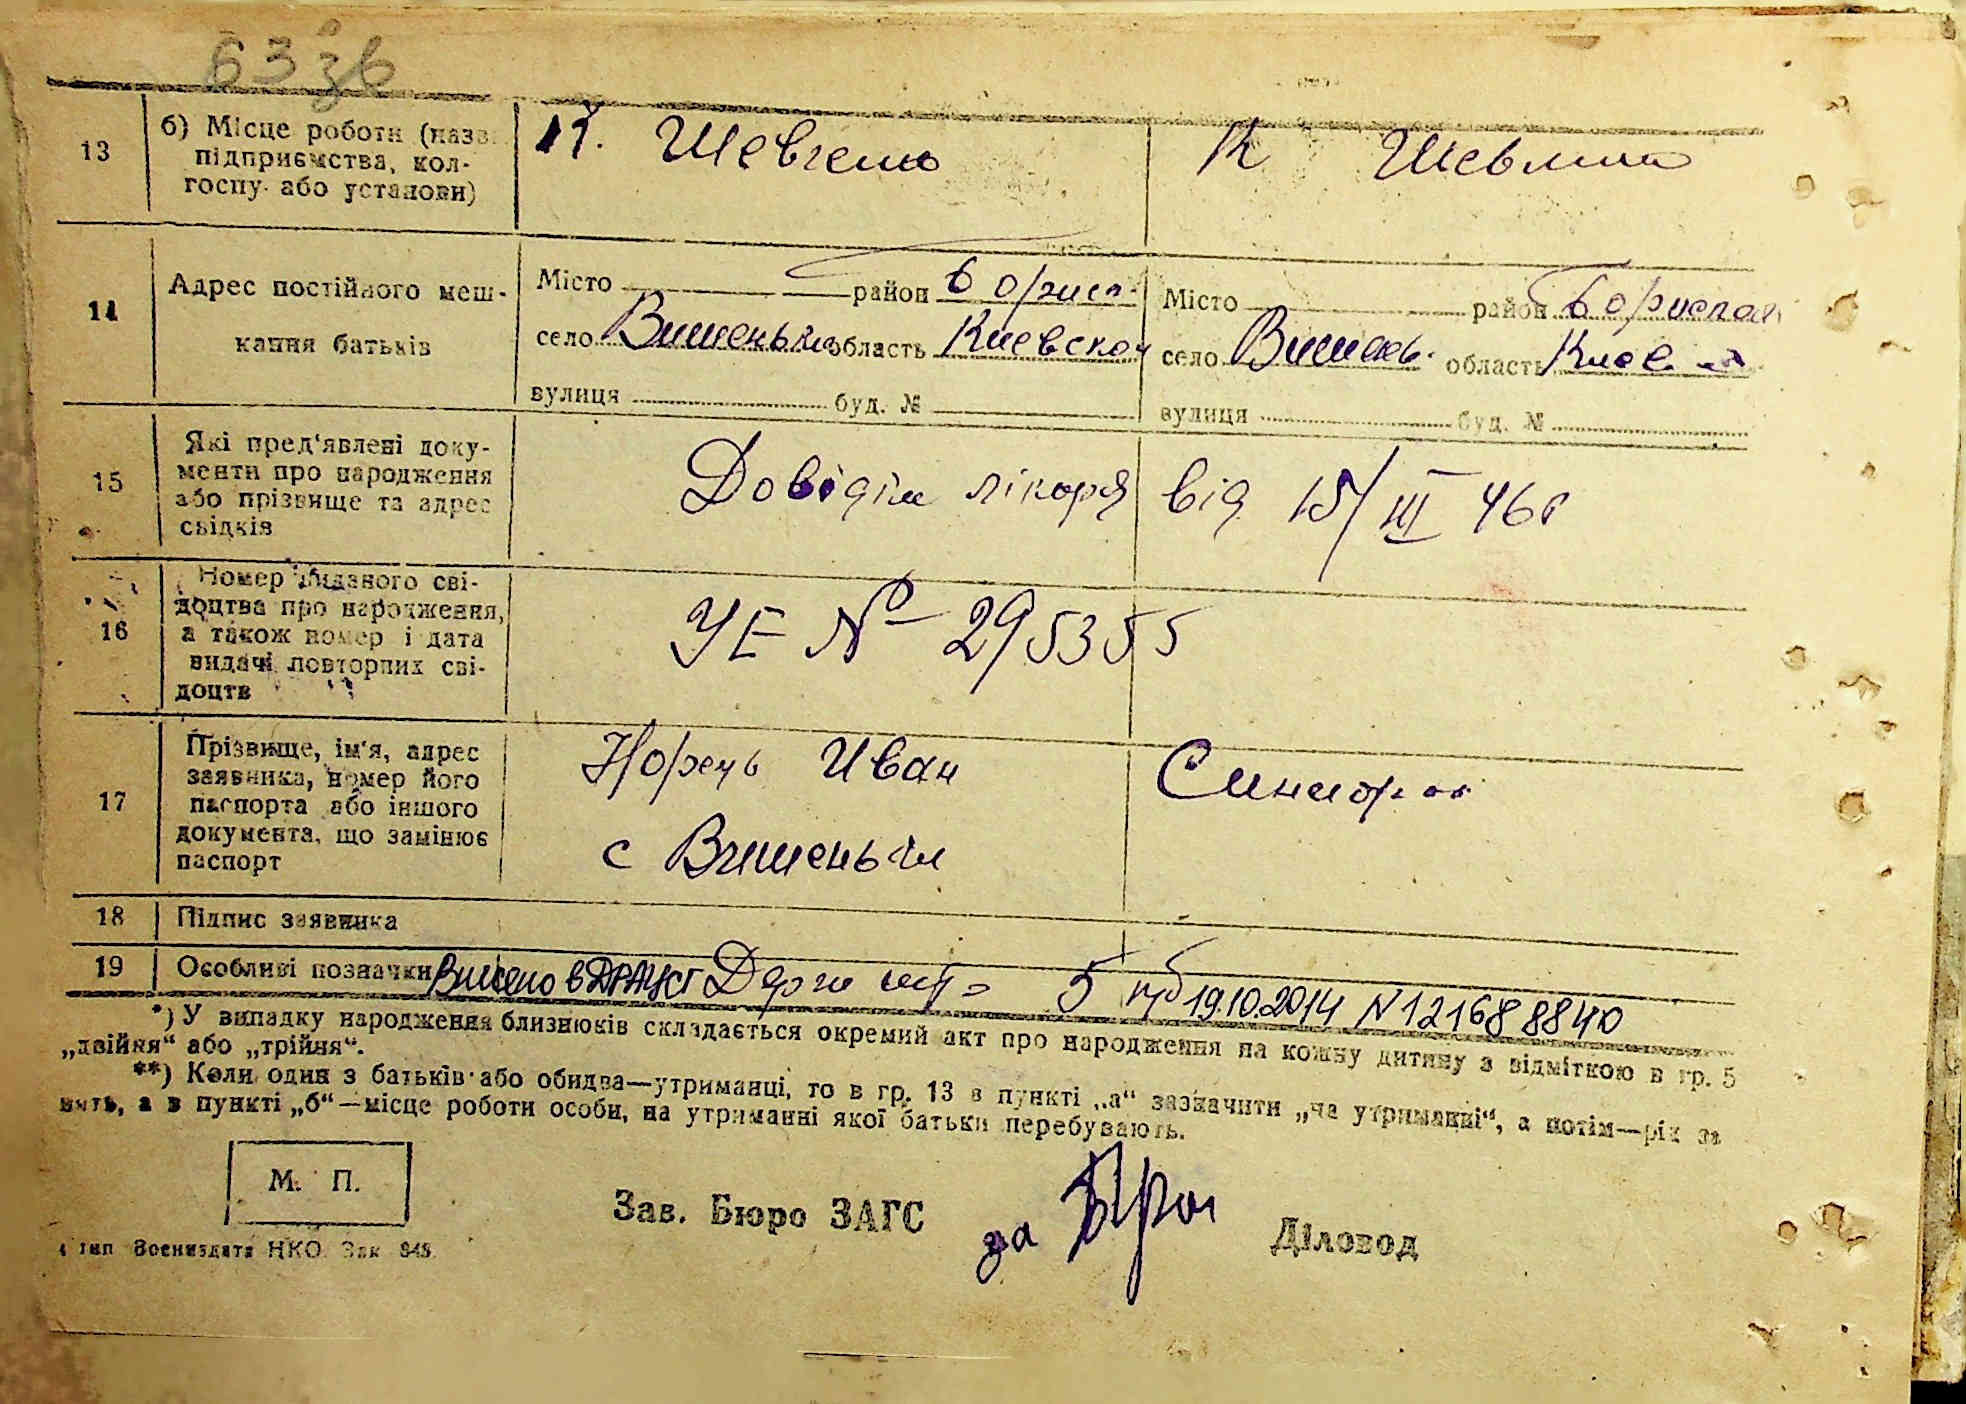 13
б) Місце роботи (назв.
підприємства, кол-
госпу або установи)
К. Шевченко
К Шевченко
14
Адрес постійного меш-
кання батьків
Місто район Борисп.
село Вишеньки область Киевской
вулиця буд. №
Місто район Бориспол
село Вишень. область Киев
вулиця буд. №
15
Які пред'явлені доку-
менти про народження
або прізвище та адрес
свідків
Довідка лікаря від 15/III 46г
16
Номер виданого сві-
доцтва про народження,
а також номер і дата
видачі повторних сві-
доцтв
УЕ № 295355
17
Прізвище, ім'я, адрес
заявника, номер його
паспорта або іншого
документа, що замінює
паспорт
Иван
с Вишеньки
18
Підпис заявника
19
Особливі позначки Внесено в ДРАЦСГ 5 19.10.2014 N 121688840
*) У випадку народження близнюків складається окремий акт про народження на кожну дитину з відміткою в гр. 5
„двійня“ або „трійня“.
**) Коли один з батьків або обидва—утриманці, то в гр. 13 в пункті „а“ зазначити „на утриманні“, а потім—рід за
нять, а в пункті „б“—місце роботи особи, на утриманні якої батьки перебувають.
М. П.
Зав. Бюро ЗАГС
за
Діловод
тип Воениздата НКО. Зак